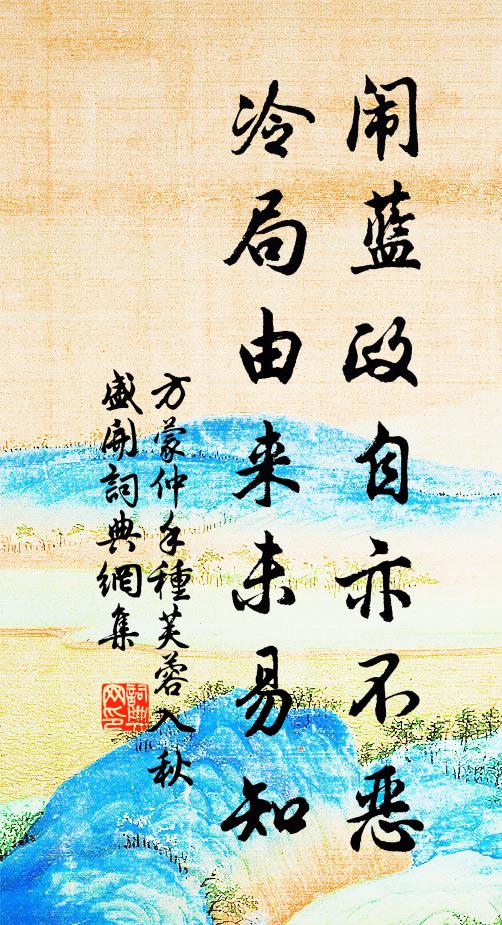 闹蓝政自亦不恶
冷局由来未易知
方蒙仲手种芙蓉入秋
盛开词典网集
词典网印